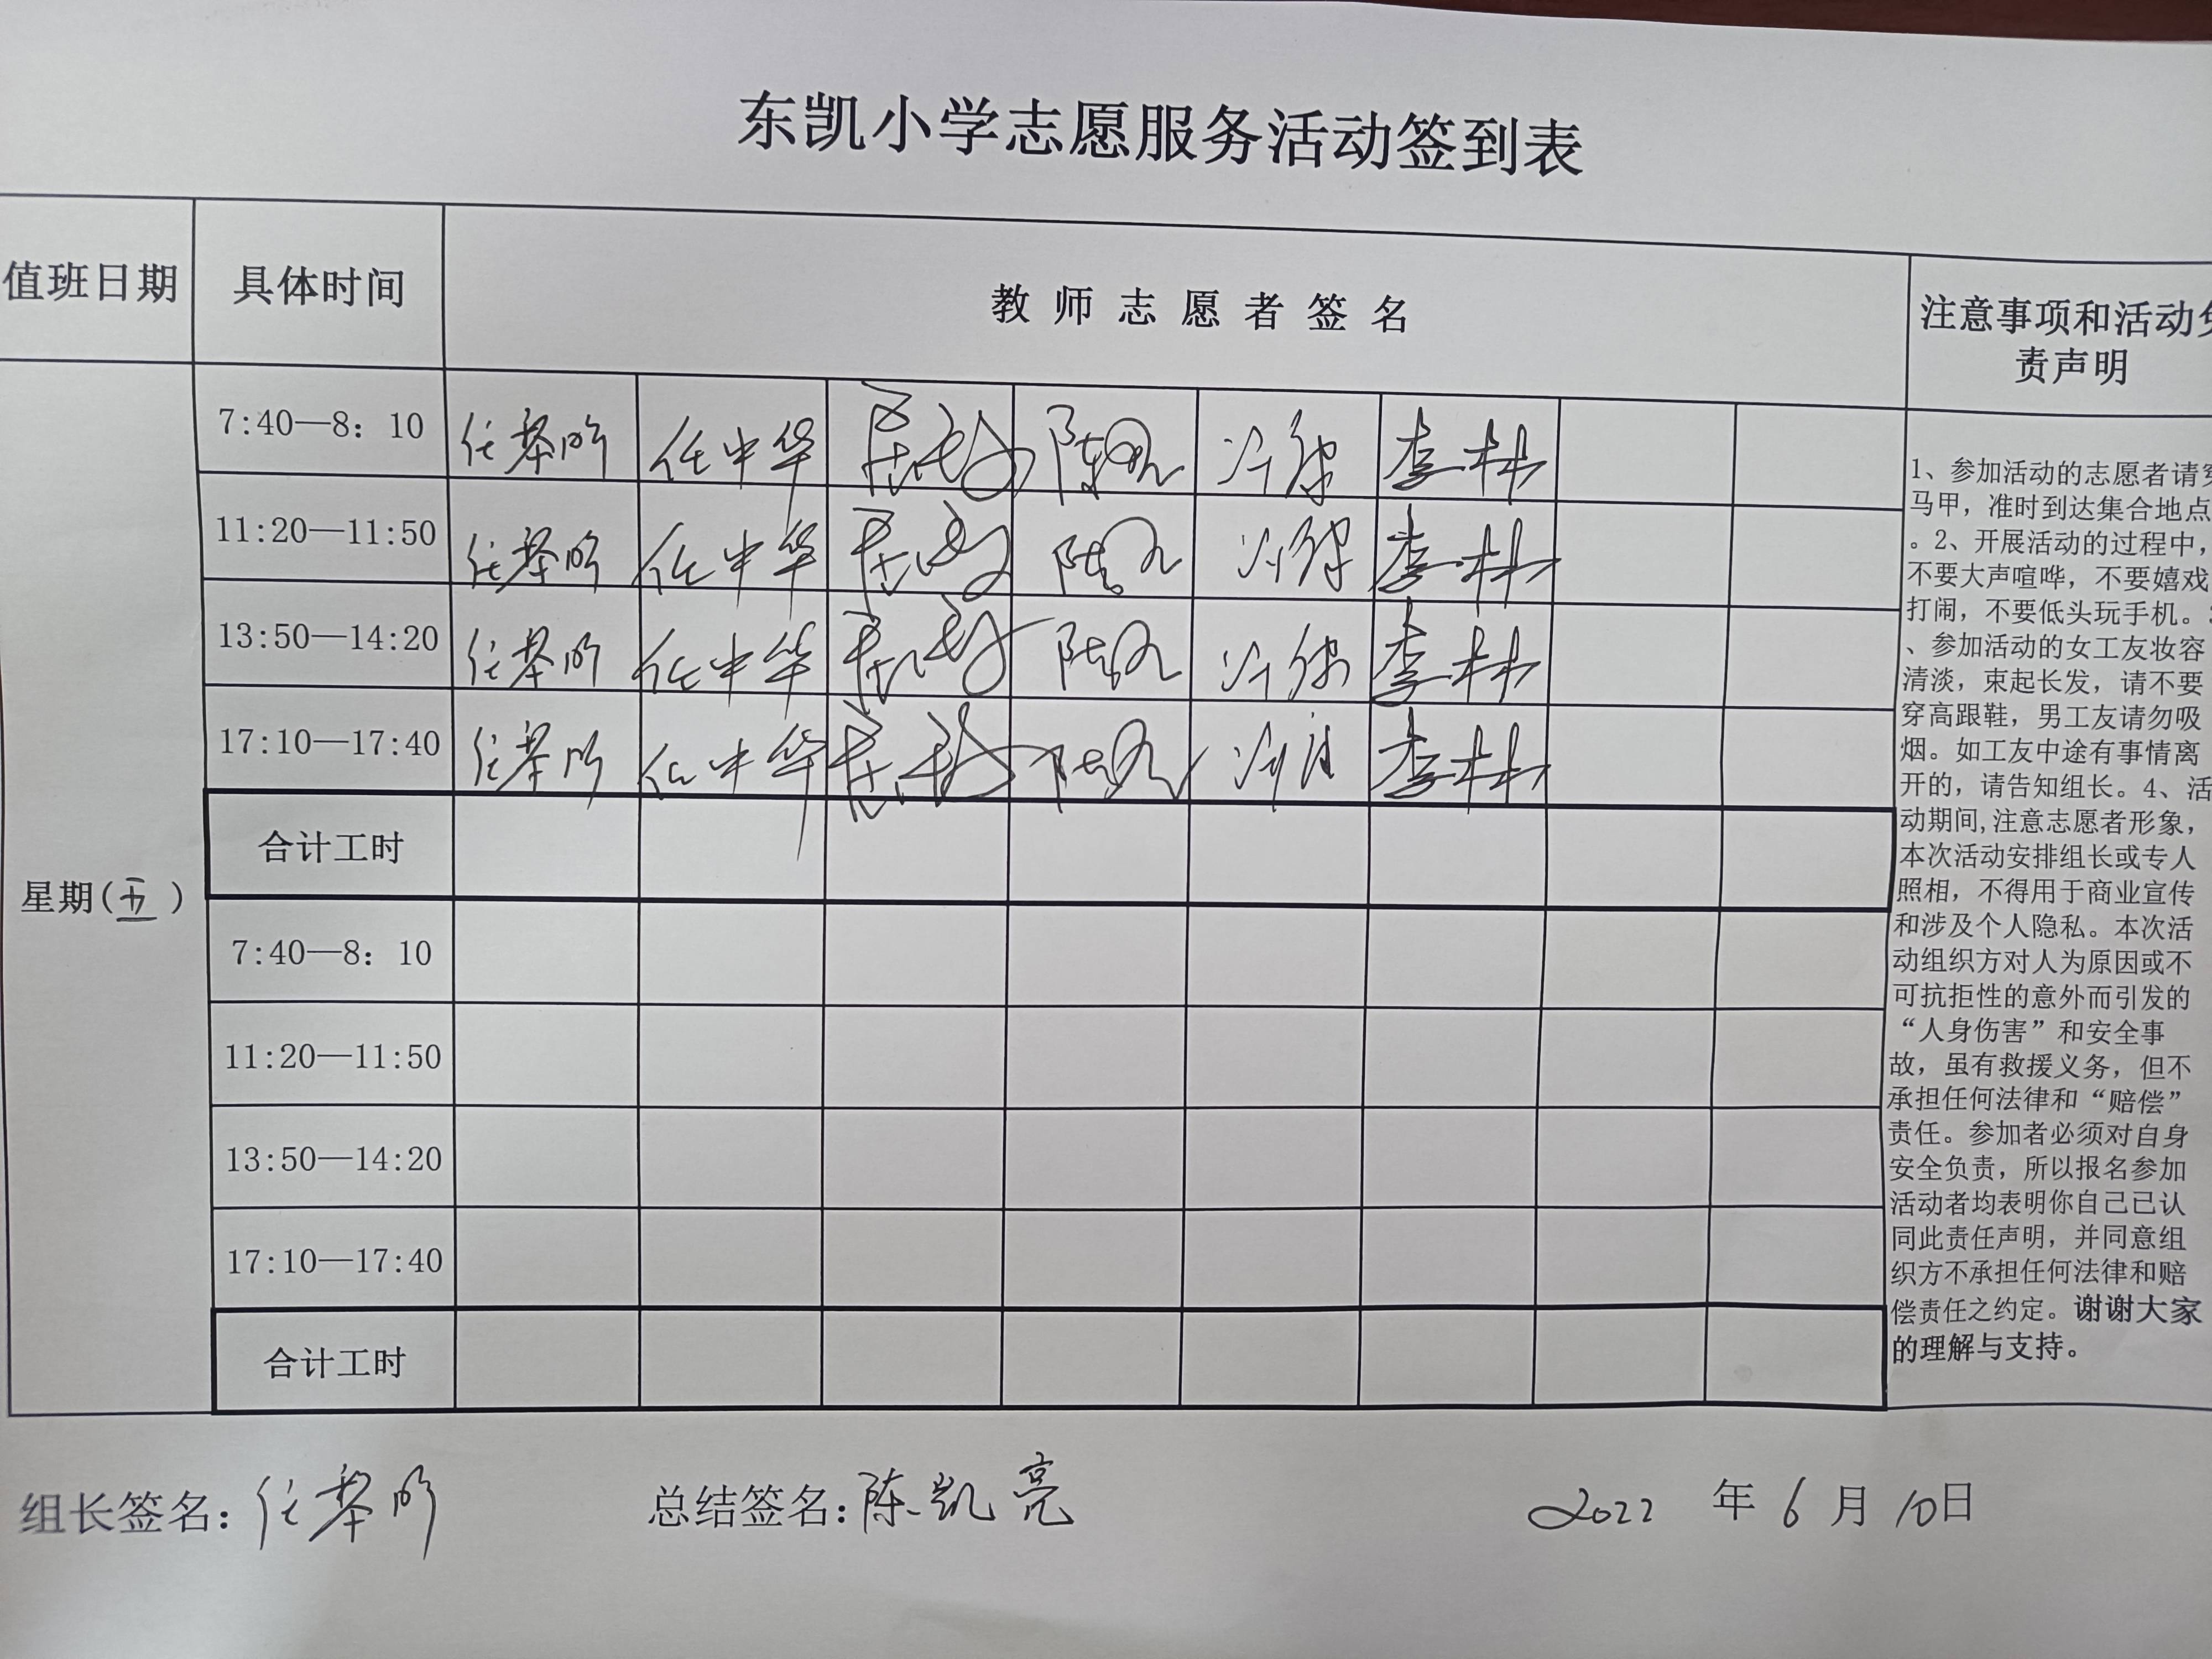 东凯小学志愿服务活动签到表
值班日期 具体时间 教师志愿者签名 注意事项和活动免
责声明
7:40—8:10 任中华 李林
11:20—11:50 任中华 李林
13:50—14:20 任中华 李林
17:10—17:40 任中华 李林
合计工时
星期(五)
7:40—8:10
11:20—11:50
13:50—14:20
17:10—17:40
合计工时
1、参加活动的志愿者请穿
马甲，准时到达集合地点
。2、开展活动的过程中，
不要大声喧哗，不要嬉戏
打闹，不要低头玩手机。3
、参加活动的女工友妆容
清淡，束起长发，请不要
穿高跟鞋，男工友请勿吸
烟。如工友中途有事情离
开的，请告知组长。4、活
动期间,注意志愿者形象，
本次活动安排组长或专人
照相，不得用于商业宣传
和涉及个人隐私。本次活
动组织方对人为原因或不
可抗拒性的意外而引发的
“人身伤害”和安全事
故，虽有救援义务，但不
承担任何法律和“赔偿”
责任。参加者必须对自身
安全负责，所以报名参加
活动者均表明你自己已认
同此责任声明，并同意组
织方不承担任何法律和赔
偿责任之约定。谢谢大家
的理解与支持。
组长签名: 总结签名:陈凯亮 2022 年 6 月 10日